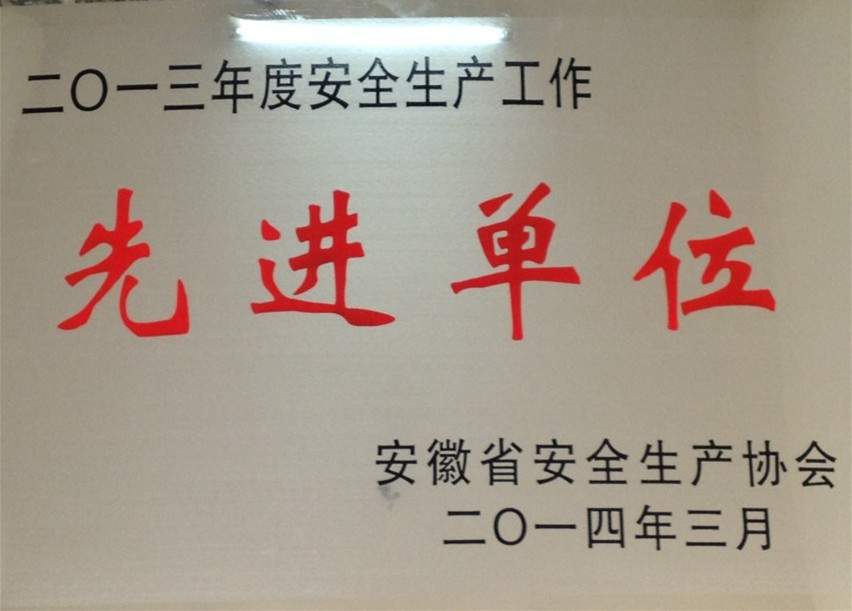 二〇一三年度安全生产工作
先进单位
安徽省安全生产协会
二〇一四年三月